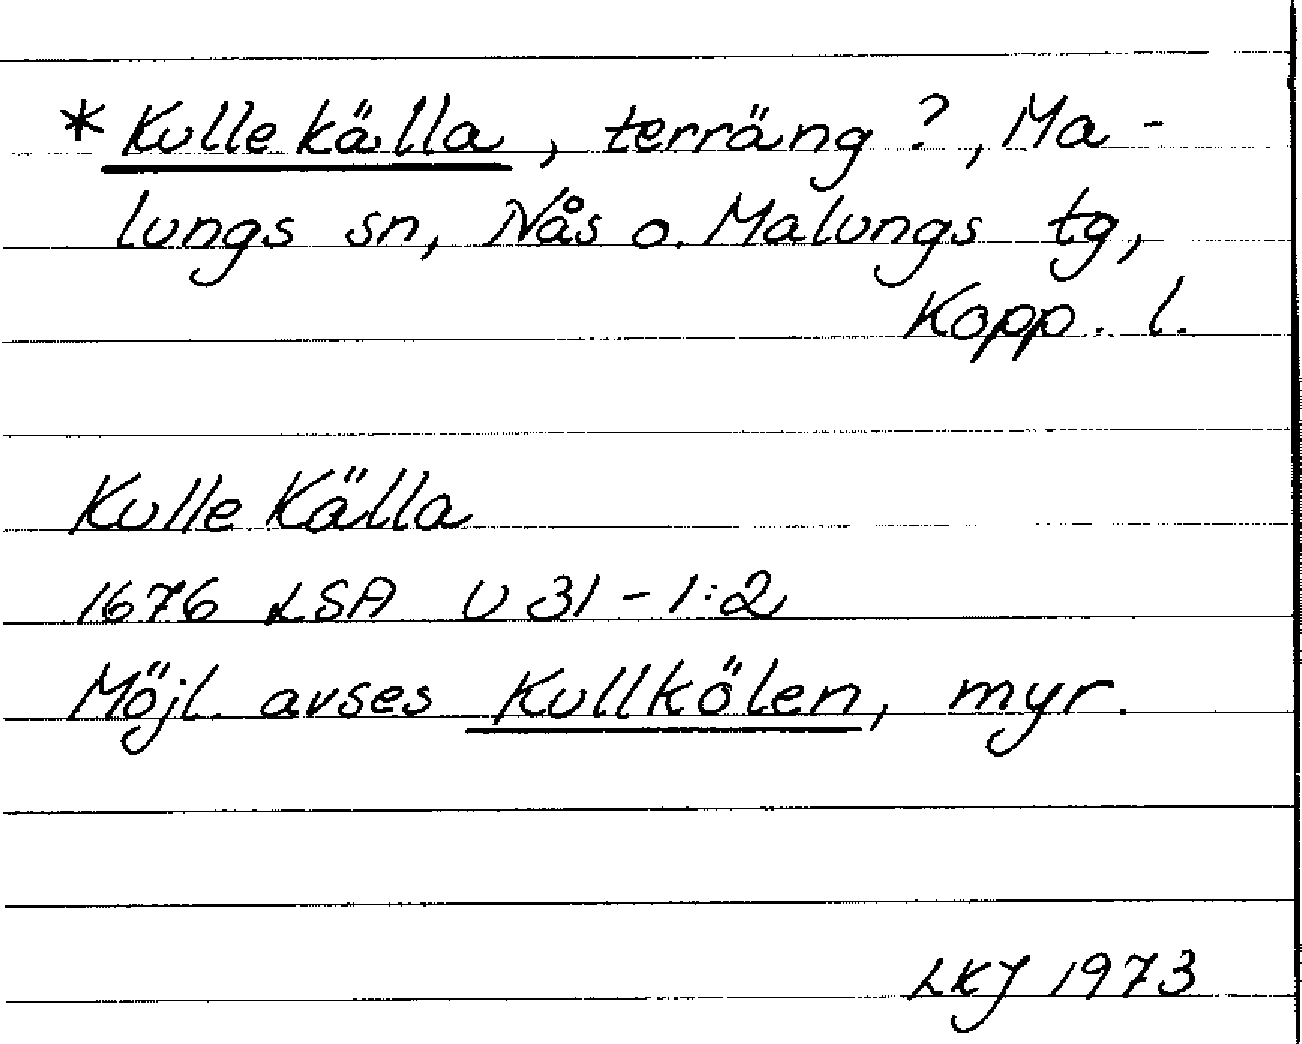 * Kulle källa, terräng?, Ma-
lungs sn, Nås o. Malungs tg,
Kopp. l.
Kulle Källa
1676 LSA U 31 - 1:2
Möjl. avses Kullkölen, myr.
LKJ 1973